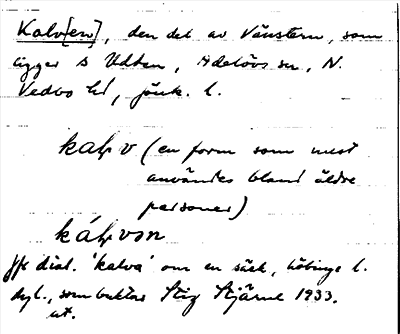 Kalv[en], den del av Vänstern, som
ligger s Udden, Adelövs sn, N.
Vedbo hd, jönk. l.
kaḷv (en form som mest
användes bland äldre
personer)
káḷvən
Jfr dial. 'kalva' om en säck,
l., som Stig Stjärne 1933.
ut.